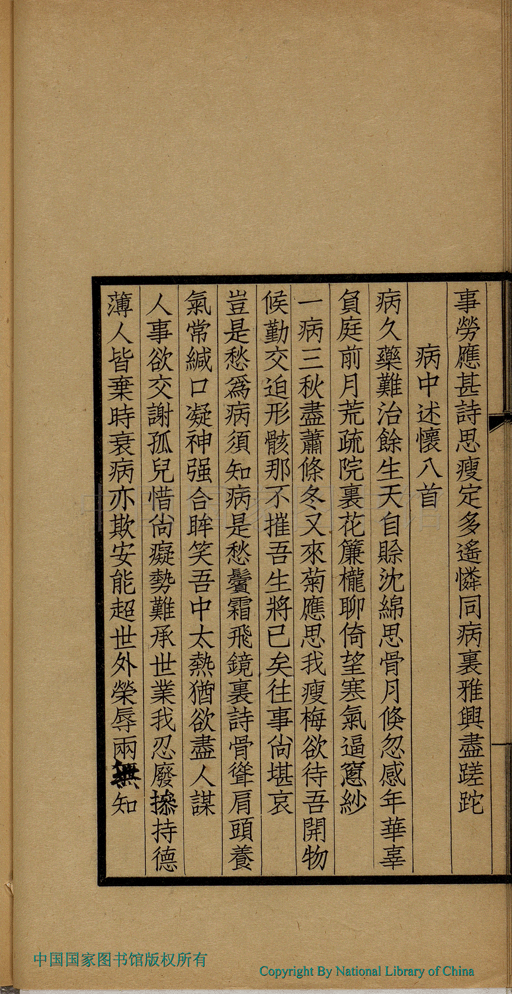 事勞應甚詩思瘦定多遙憐同病裏雅興盡蹉跎
病中述懷八首
病久藥難治餘生天自賒沈綿思骨月倏忽感年華辜
負庭前月荒疏院裏花簾櫳聊倚望寒氣逼窻紗
一病三秋盡蕭條冬又來菊應思我瘦梅欲待吾開物
候勤交迫形骸那不摧吾生將已矣往事尙堪哀
豈是愁爲病須知病是愁鬢霜飛鏡裏詩骨聳肩頭養
氣常緘口凝神强合眸笑吾中太熱猶欲盡人謀
人事欲交謝孤兒惜尙癡勢難承世業我忍廢持德
薄人皆棄時衰病亦欺安能超世外榮辱兩無知
中国国家图书馆版权所有
Copyright By National Library of China